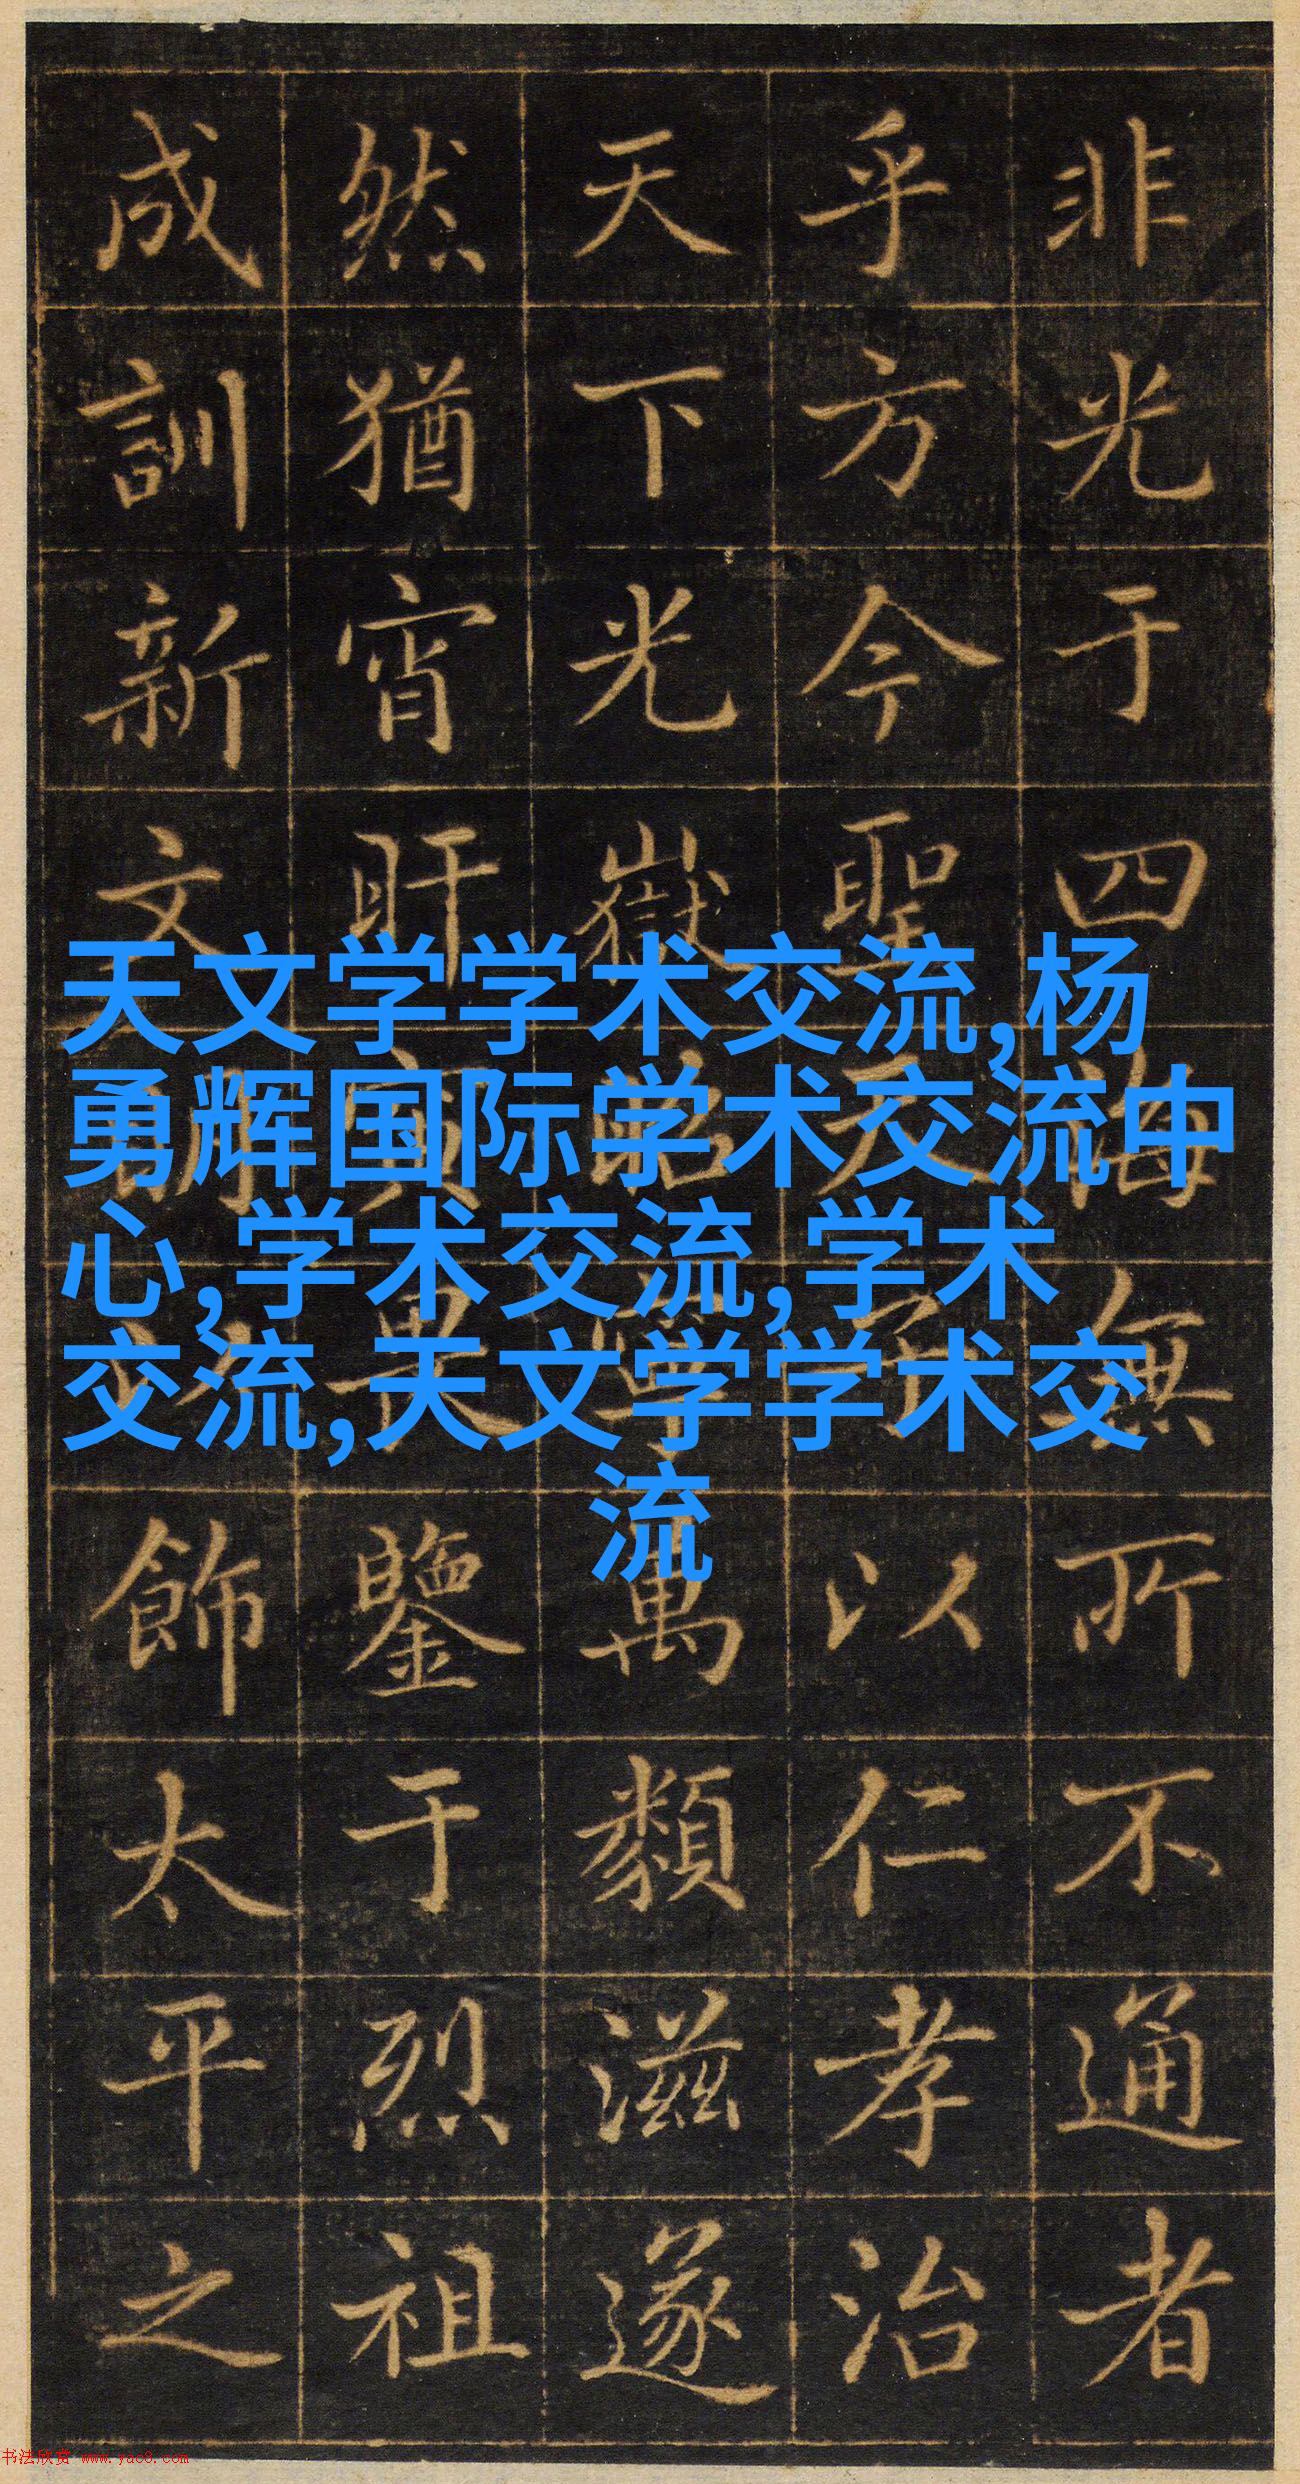 非光于四海無所不通者
乎方今聖天子以仁孝治
天下光嶽萬類滋遂
然猶宵旰寅畏鑒于烈祖
成訓新文明以飾太平之
天文学学术交流,杨
勇辉国际学术交流中
心,学术交流,学术
交流,天文学学术交
流
书法欣赏 www.yac8.com